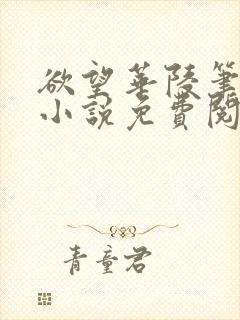 欲望華陵筆
小說免費閱
青童君